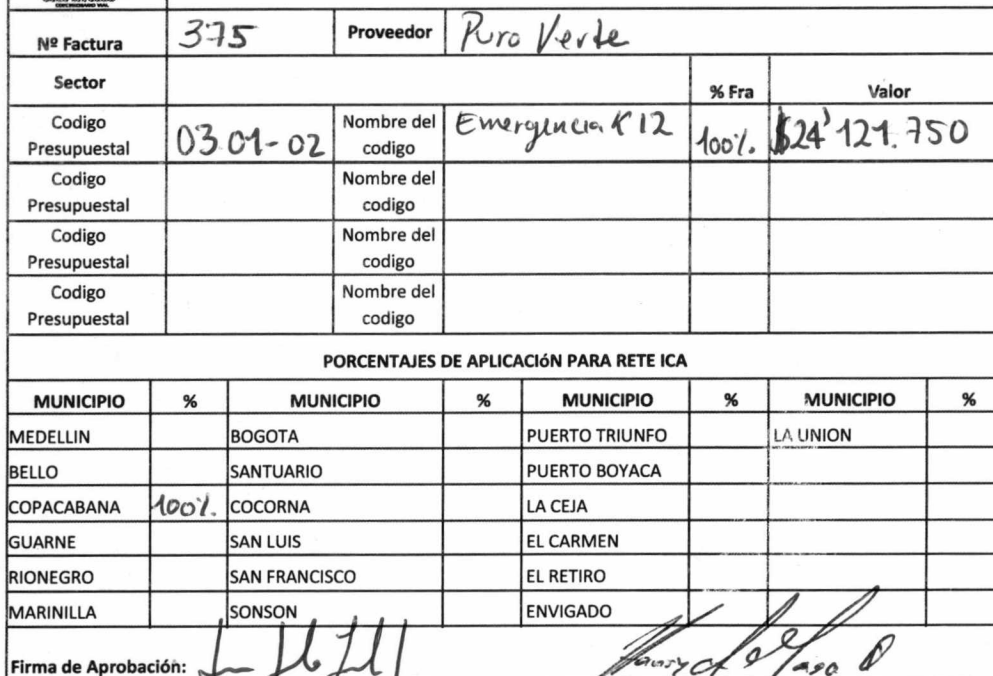 CONCESIONARIO VIAL
Nº Factura 375 Proveedor Puro Verde
Sector % Fra Valor
Codigo Presupuestal 03.01-02 Nombre del codigo Emergencia K12 100% $24'121.750
Codigo Presupuestal Nombre del codigo
Codigo Presupuestal Nombre del codigo
Codigo Presupuestal Nombre del codigo
PORCENTAJES DE APLICACIóN PARA RETE ICA
MUNICIPIO % MUNICIPIO % MUNICIPIO % MUNICIPIO %
MEDELLIN BOGOTA PUERTO TRIUNFO LA UNION
BELLO SANTUARIO PUERTO BOYACA
COPACABANA 100% COCORNA LA CEJA
GUARNE SAN LUIS EL CARMEN
RIONEGRO SAN FRANCISCO EL RETIRO
MARINILLA SONSON ENVIGADO
Firma de Aprobación: